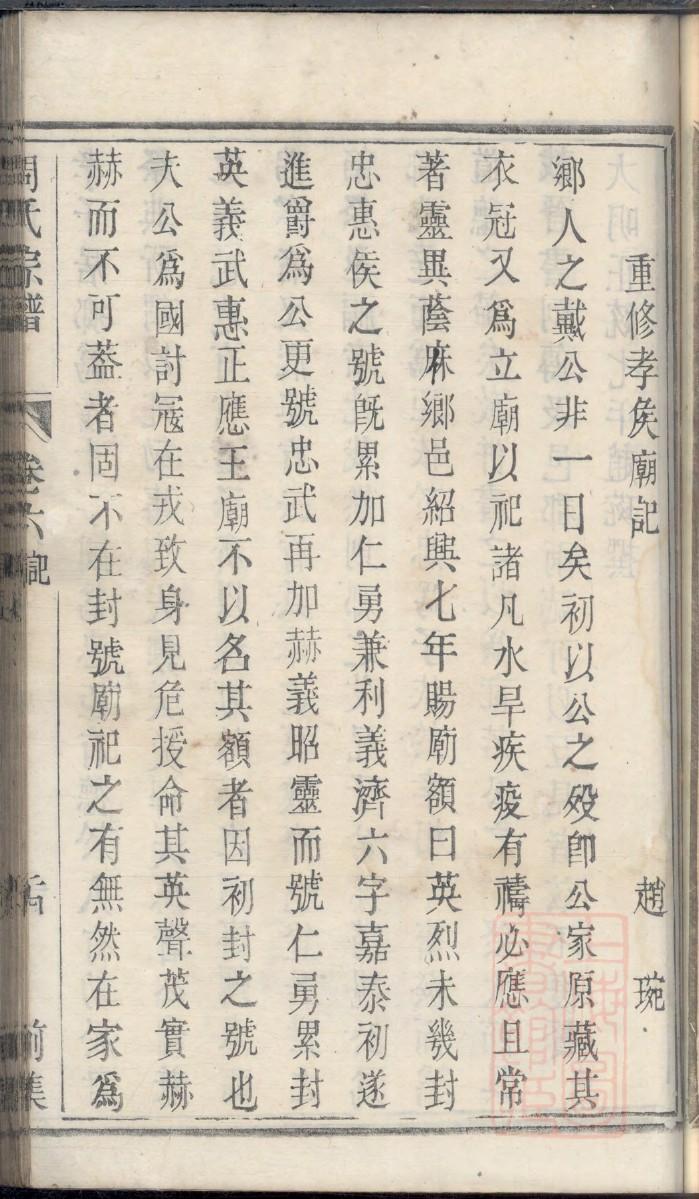 重修孝侯廟記 趙琬
鄉人之戴公非一日矣初以公之歿卽公家原藏其
衣冠又爲立廟以祀諸凡水旱疾疫有禱必應且常
著靈異蔭庥鄉邑紹興七年賜廟額曰英烈未幾封
忠惠侯之號旣累加仁勇兼利義濟六字嘉泰初遂
進爵爲公更號忠武再加赫義昭靈而號仁勇累封
英義武惠正應王廟不以名其額者因初封之號也
夫公爲國討寇在戎致身見危授命其英聲茂實赫
赫而不可葢者固不在封號廟祀之有無然在家爲
周氏宗譜 卷六 記 前集